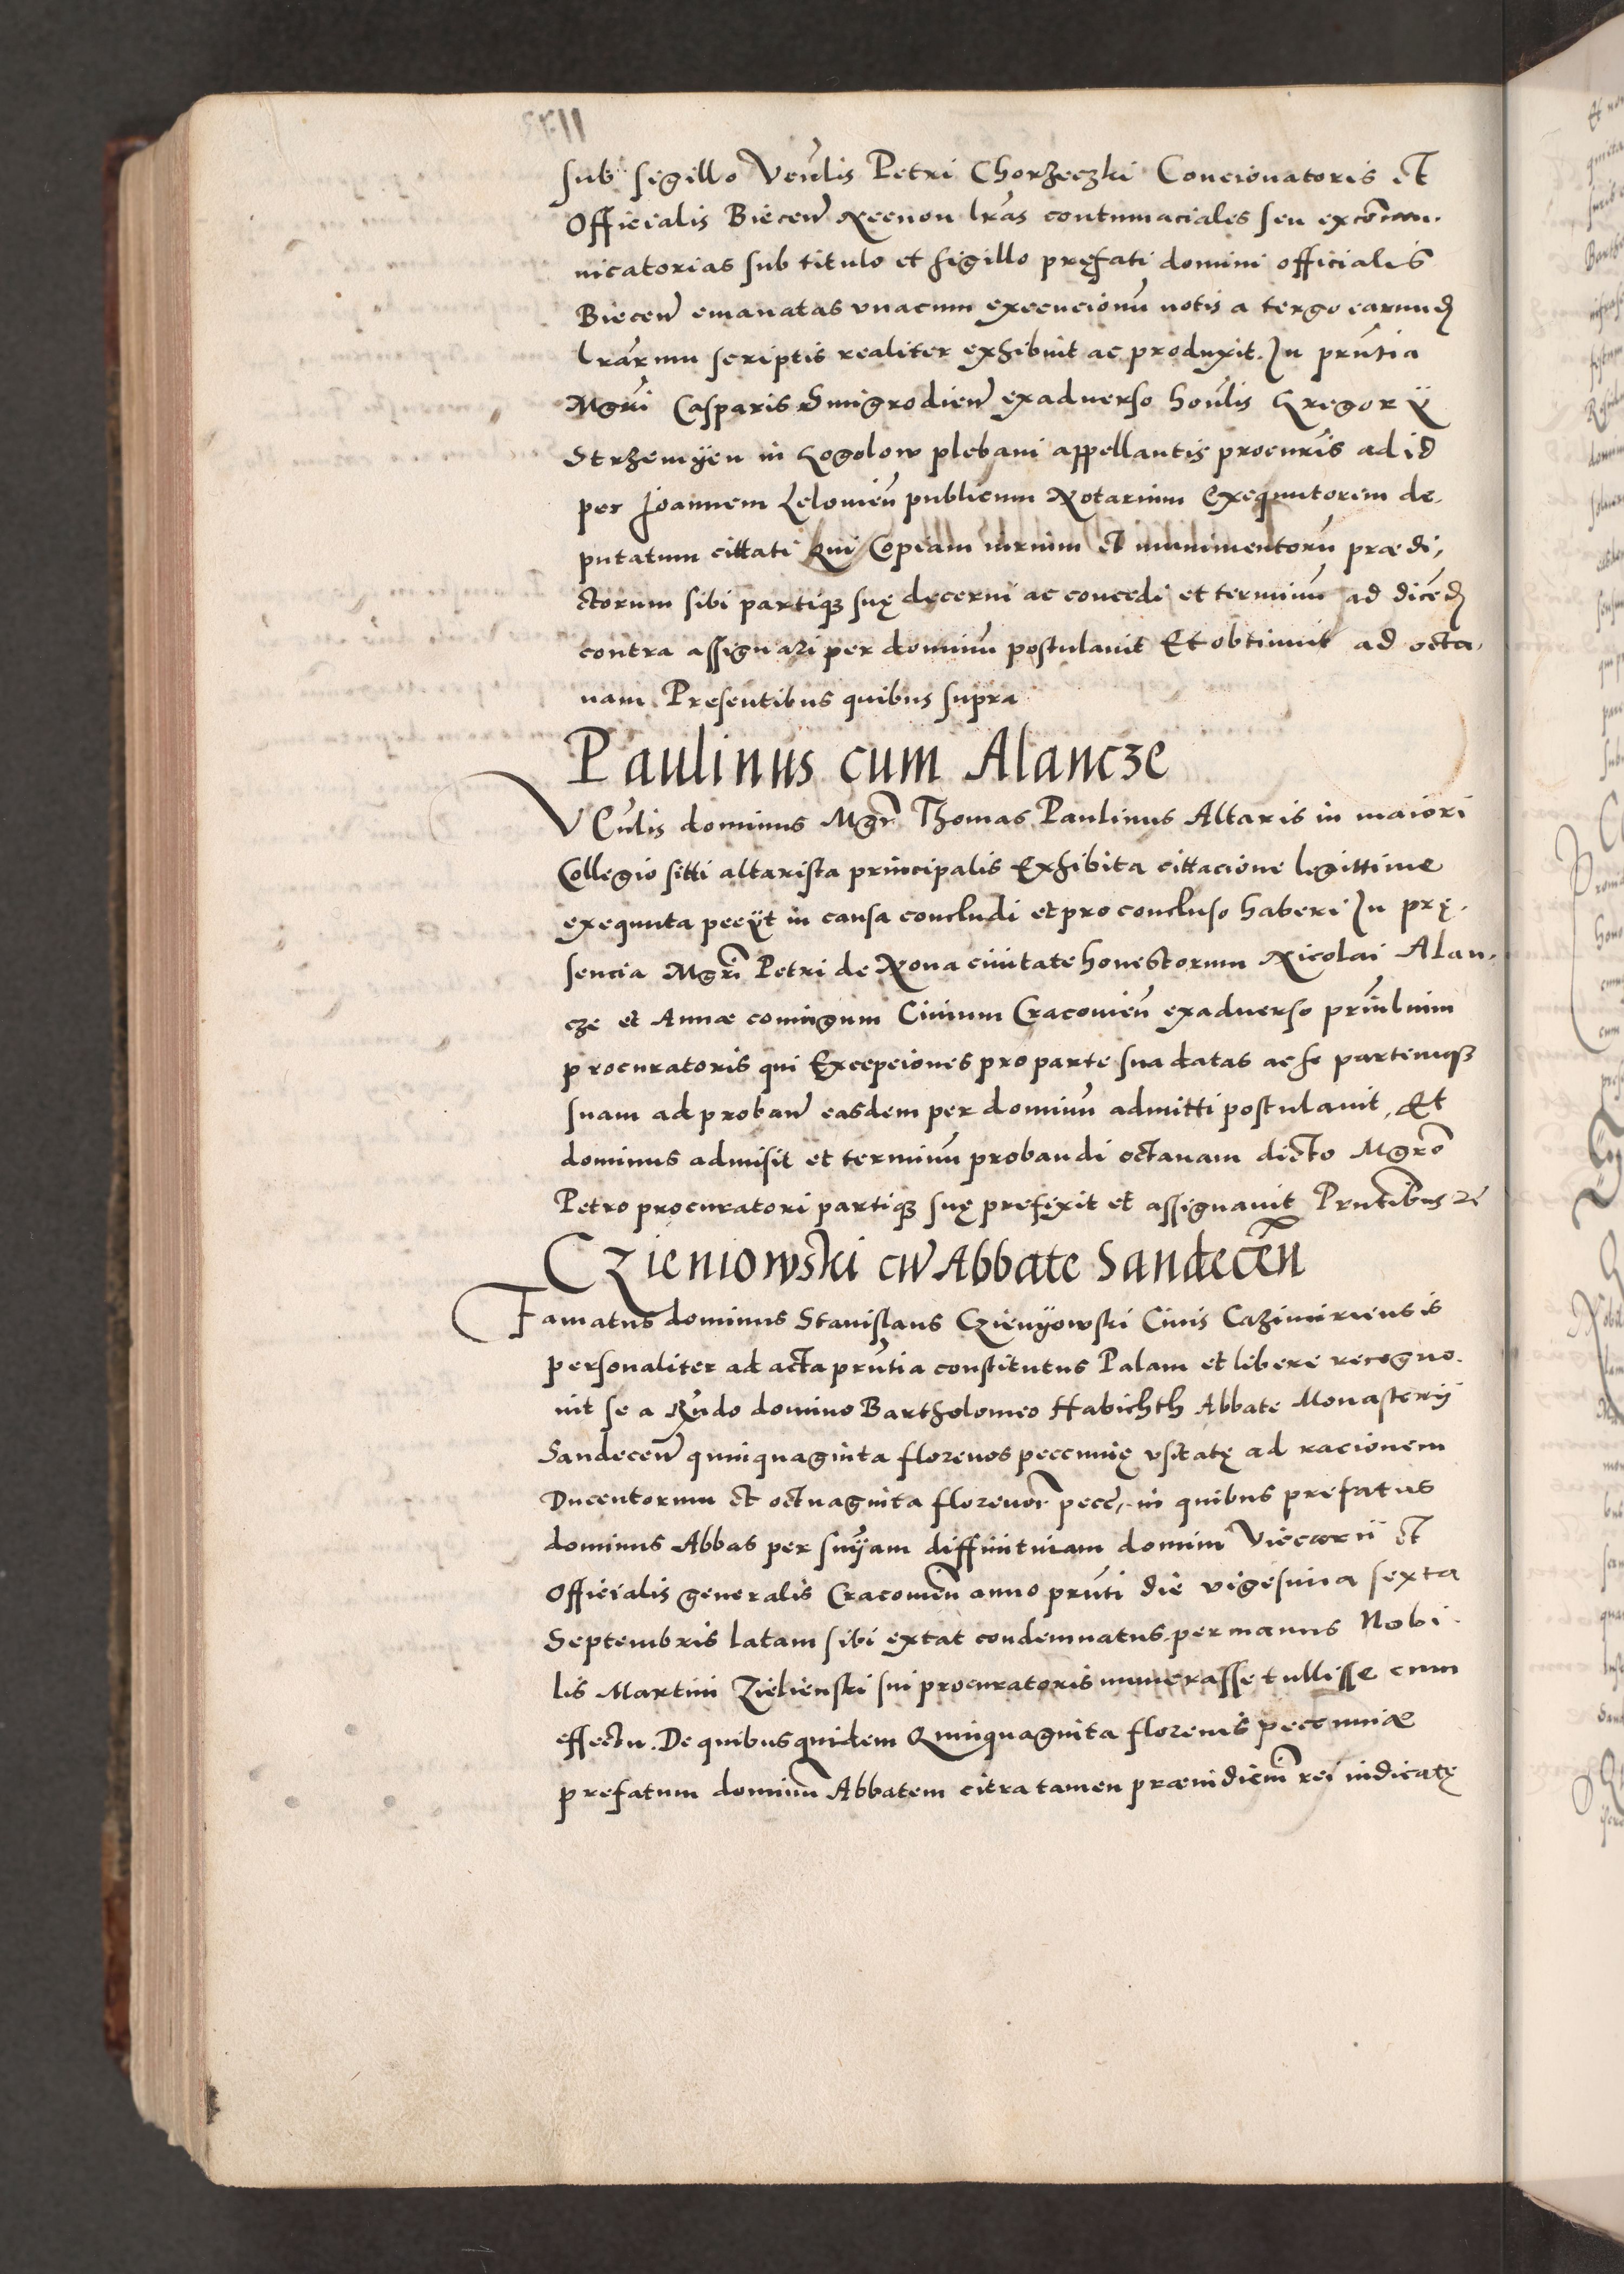 sub sigillo Venlis Petri Chorzeczki Concionatoris et
Officialis Biecen Necnon lras contumaciales seu excomu-
nicatorias sub titulo et sigillo pręfati domini officialis
Biecen emanatas vnacum execucionu notis a tergo earund
lrarum scriptis realiter exhibuit ac produxit. In prntia
Mgri Casparis Smigrodien exaduerso honlis Gregorÿ
Strzemÿen in Gogolow plebani appellantis procuris ad id
per Joannem Leloviен publicum Notarium Exequutorem de-
putatum cittati Qui Copiam iurium et munimentoru prædi-
ctorum sibi partiqz suę decerni ac concedi et terminu ad dicend
contra assignari per dominu postulauit Et obtinuit ad octa-
uam Presentibus quibus supra
Paulinus cum Alancze
VEnlis dominus Mgr Thomas Paulinus Altaris in maiori
Collegio sitti altarista principalis Exhibita cittacione legittime
exequuta peeÿt in causa concludi et pro concluso haberi In prę-
sencia Mgri Petri de Noua ciuitate honestorum Nicolai Alan-
cze et Annæ coniugum Ciuium Cracouien exaduerso prinlium
procuratoris qui Excepciones pro parte sua datas ac se partemqz
suam ad proban easdem per dominu admitti postulauit, Et
dominus admisit et terminu probandi octauam dicto Mgro
Petro procuratori partiqz suę prefixit et assignauit Prntibus
CZieniowski cu Abbate Sandecen
Famatus dominus Stanislaus Czienÿowski Ciuis Cazimiriensis
personaliter ad acta prntia constitutus Palam et libere recogno-
uit se a Rndo domino Bartholomeo Habichth Abbate Monasterÿ
Sandecen quinquaginta florenos peccunię vsitatę ad racionem
Ducentorum et octuaginta florenor pecc, in quibus prefatus
dominus Abbas per snÿam diffinitiuam domini Viccarii et
Officialis generalis Cracouien anno prnti die vigesima sexta
Septembris latam sibi extat condemnatus per manus Nobi-
lis Martini Zielienski sui procuratoris numerasse tullisse cum
effectu. De quibus quidem Quinquaginta florenis peccuniæ
prefatum dominu Abbatem citra tamen præiudiciu rei iudicatę